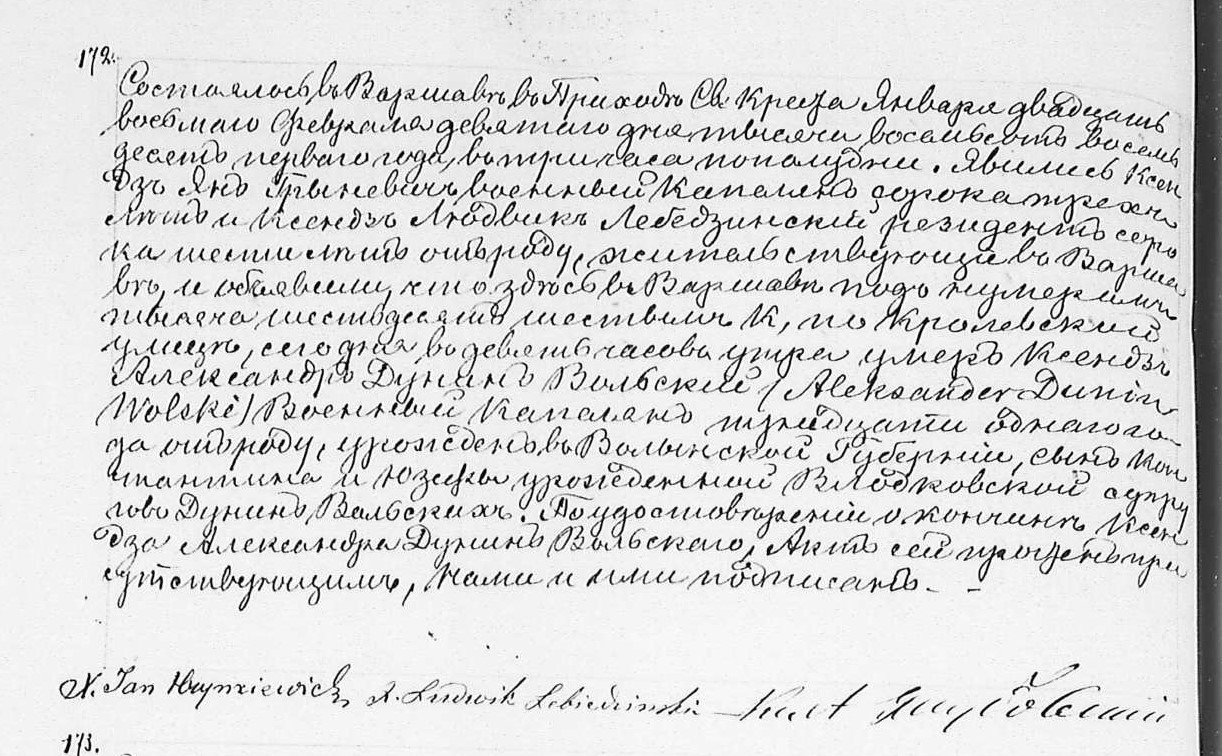 172.
Состоялось въ Варшавѣ въ Приходѣ Св. Креста Января двадцать
восьмаго Февраля девятаго дня тысяча восемьсотъ восемь
десятъ перваго года, въ три часа пополудни. Явились Ксен
дзъ Янъ Грыневичъ военный Капелянъ сорока трехъ
лѣтъ и Ксендзъ Людвикъ Лебедзинскій резидентъ соро
ка шести лѣтъ отъ роду, жительствующіе въ Варша
вѣ, и объявили, что здѣсь въ Варшавѣ подъ нумеромъ
тысяча шестьдесятъ шестымъ К, по Кролевской
улицѣ, сего дня въ девять часовъ утра умеръ Ксендзъ
Александръ Дунинъ Вольскій (Aleksander Dunin
Wolski) Военный Капелянъ тридцати одного го
да отъ роду, урожденъ въ Волынской Губерніи, сынъ Кон
стантина и Юзефы урожденной Влодковской супру
говъ Дунинъ Вольскихъ. По удостовѣреніи о кончинѣ Ксен
дза Александра Дунинъ Вольскаго, Актъ сей прочтенъ при
сутствующимъ, Нами и ими подписанъ.
X. Jan Hrynniewicz X. Ludwik Lebiedzinski
173.